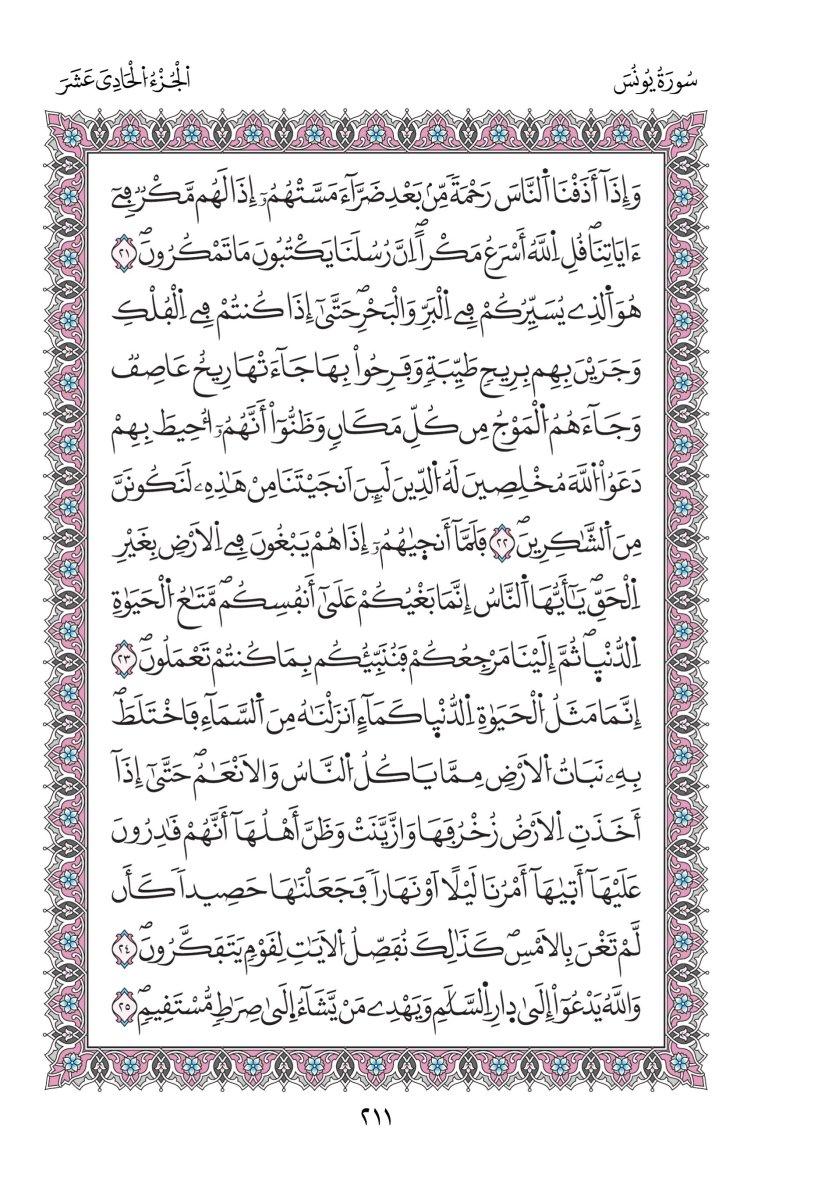 سُورَةُ يُونُسَ
اَ۬لْجُزْءُ اُ۬لْحَادِيَ عَشَرَ
وَإِذَآ أَذَقْنَا اَ۬لنَّاسَ رَحْمَةٗ مِّنۢ بَعْدِ ضَرَّآءَ مَسَّتْهُمُۥٓ إِذَا لَهُم مَّكْرٞ فِےٓ
ءَايَاتِنَاۖ قُلِ اِ۬للَّهُ أَسْرَعُ مَكْراًۖ اِنَّ رُسُلَنَا يَكْتُبُونَ مَا تَمْكُرُونَۖ ٢١
هُوَ اَ۬لذِے يُسَيِّرُكُمْ فِے اِ۬لْبَرِّ وَالْبَحْرِۖ حَتَّىٰٓ إِذَا كُنتُمْ فِے اِ۬لْفُلْكِ
وَجَرَيْنَ بِهِم بِرِيحٖ طَيِّبَةٖ وَفَرِحُواْ بِهَا جَآءَتْهَا رِيحٌ عَاصِفٞ
وَجَآءَهُمُ اُ۬لْمَوْجُ مِن كُلِّ مَكَانٖ وَظَنُّوٓاْ أَنَّهُمُۥٓ أُحِيطَ بِهِمْ
دَعَوُاْ اُ۬للَّهَ مُخْلِصِينَ لَهُ اُ۬لدِّينَ لَئِنَ اَنجَيْتَنَا مِنْ هَٰذِهِۦ لَنَكُونَنَّ
مِنَ اَ۬لشَّٰكِرِينَۖ ٢٢ فَلَمَّآ أَنج۪يٰهُمُۥٓ إِذَا هُمْ يَبْغُونَ فِے اِ۬لَارْضِ بِغَيْرِ
اِ۬لْحَقِّۖ يَٰٓأَيُّهَا اَ۬لنَّاسُ إِنَّمَا بَغْيُكُمْ عَلَىٰٓ أَنفُسِكُمۖ مَّتَٰعُ اُ۬لْحَيَوٰةِ
اِ۬لدُّنْي۪اۖ ثُمَّ إِلَيْنَا مَرْجِعُكُمْ فَنُنَبِّئُكُم بِمَا كُنتُمْ تَعْمَلُونَۖ ٢٣
إِنَّمَا مَثَلُ اُ۬لْحَيَوٰةِ اِ۬لدُّنْي۪ا كَمَآءٍ اَنزَلْنَٰهُ مِنَ اَ۬لسَّمَآءِ فَاخْتَلَطَۖ
بِهِۦ نَبَاتُ اُ۬لَارْضِ مِمَّا يَاكُلُ اُ۬لنَّاسُ وَالَانْعَٰمُۖ حَتَّىٰٓ إِذَآ
أَخَذَتِ اِ۬لَارْضُ زُخْرُفَهَا وَازَّيَّنَتْ وَظَنَّ أَهْلُهَآ أَنَّهُمْ قَٰدِرُونَ
عَلَيْهَآ أَت۪يٰهَآ أَمْرُنَا لَيْلاً اَوْ نَهَاراٗ فَجَعَلْنَٰهَا حَصِيداٗ كَأَن
لَّمْ تَغْنَ بِالَامْسِۖ كَذَٰلِكَ نُفَصِّلُ اُ۬لَايَٰتِ لِقَوْمٖ يَتَفَكَّرُونَۖ ٢٤
وَاللَّهُ يَدْعُوٓاْ إِلَىٰ د۪ارِ اِ۬لسَّلَٰمِ وَيَهْدِے مَنْ يَّشَآءُ اِ۪لَىٰ صِرَٰطٖ مُّسْتَقِيمٖۖ ٢٥
٢١١